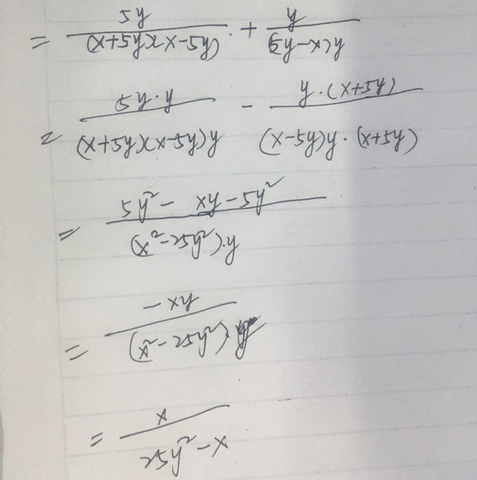 = 5y/((x+5y)(x-5y)) + y/((5y-x)y)
= 5y·y/((x+5y)(x-5y)y) - y·(x+5y)/((x-5y)y·(x+5y))
= (5y²- xy-5y²)/((x²-25y²)·y)
= -xy/((x²-25y²)y)
= x/(25y²-x)